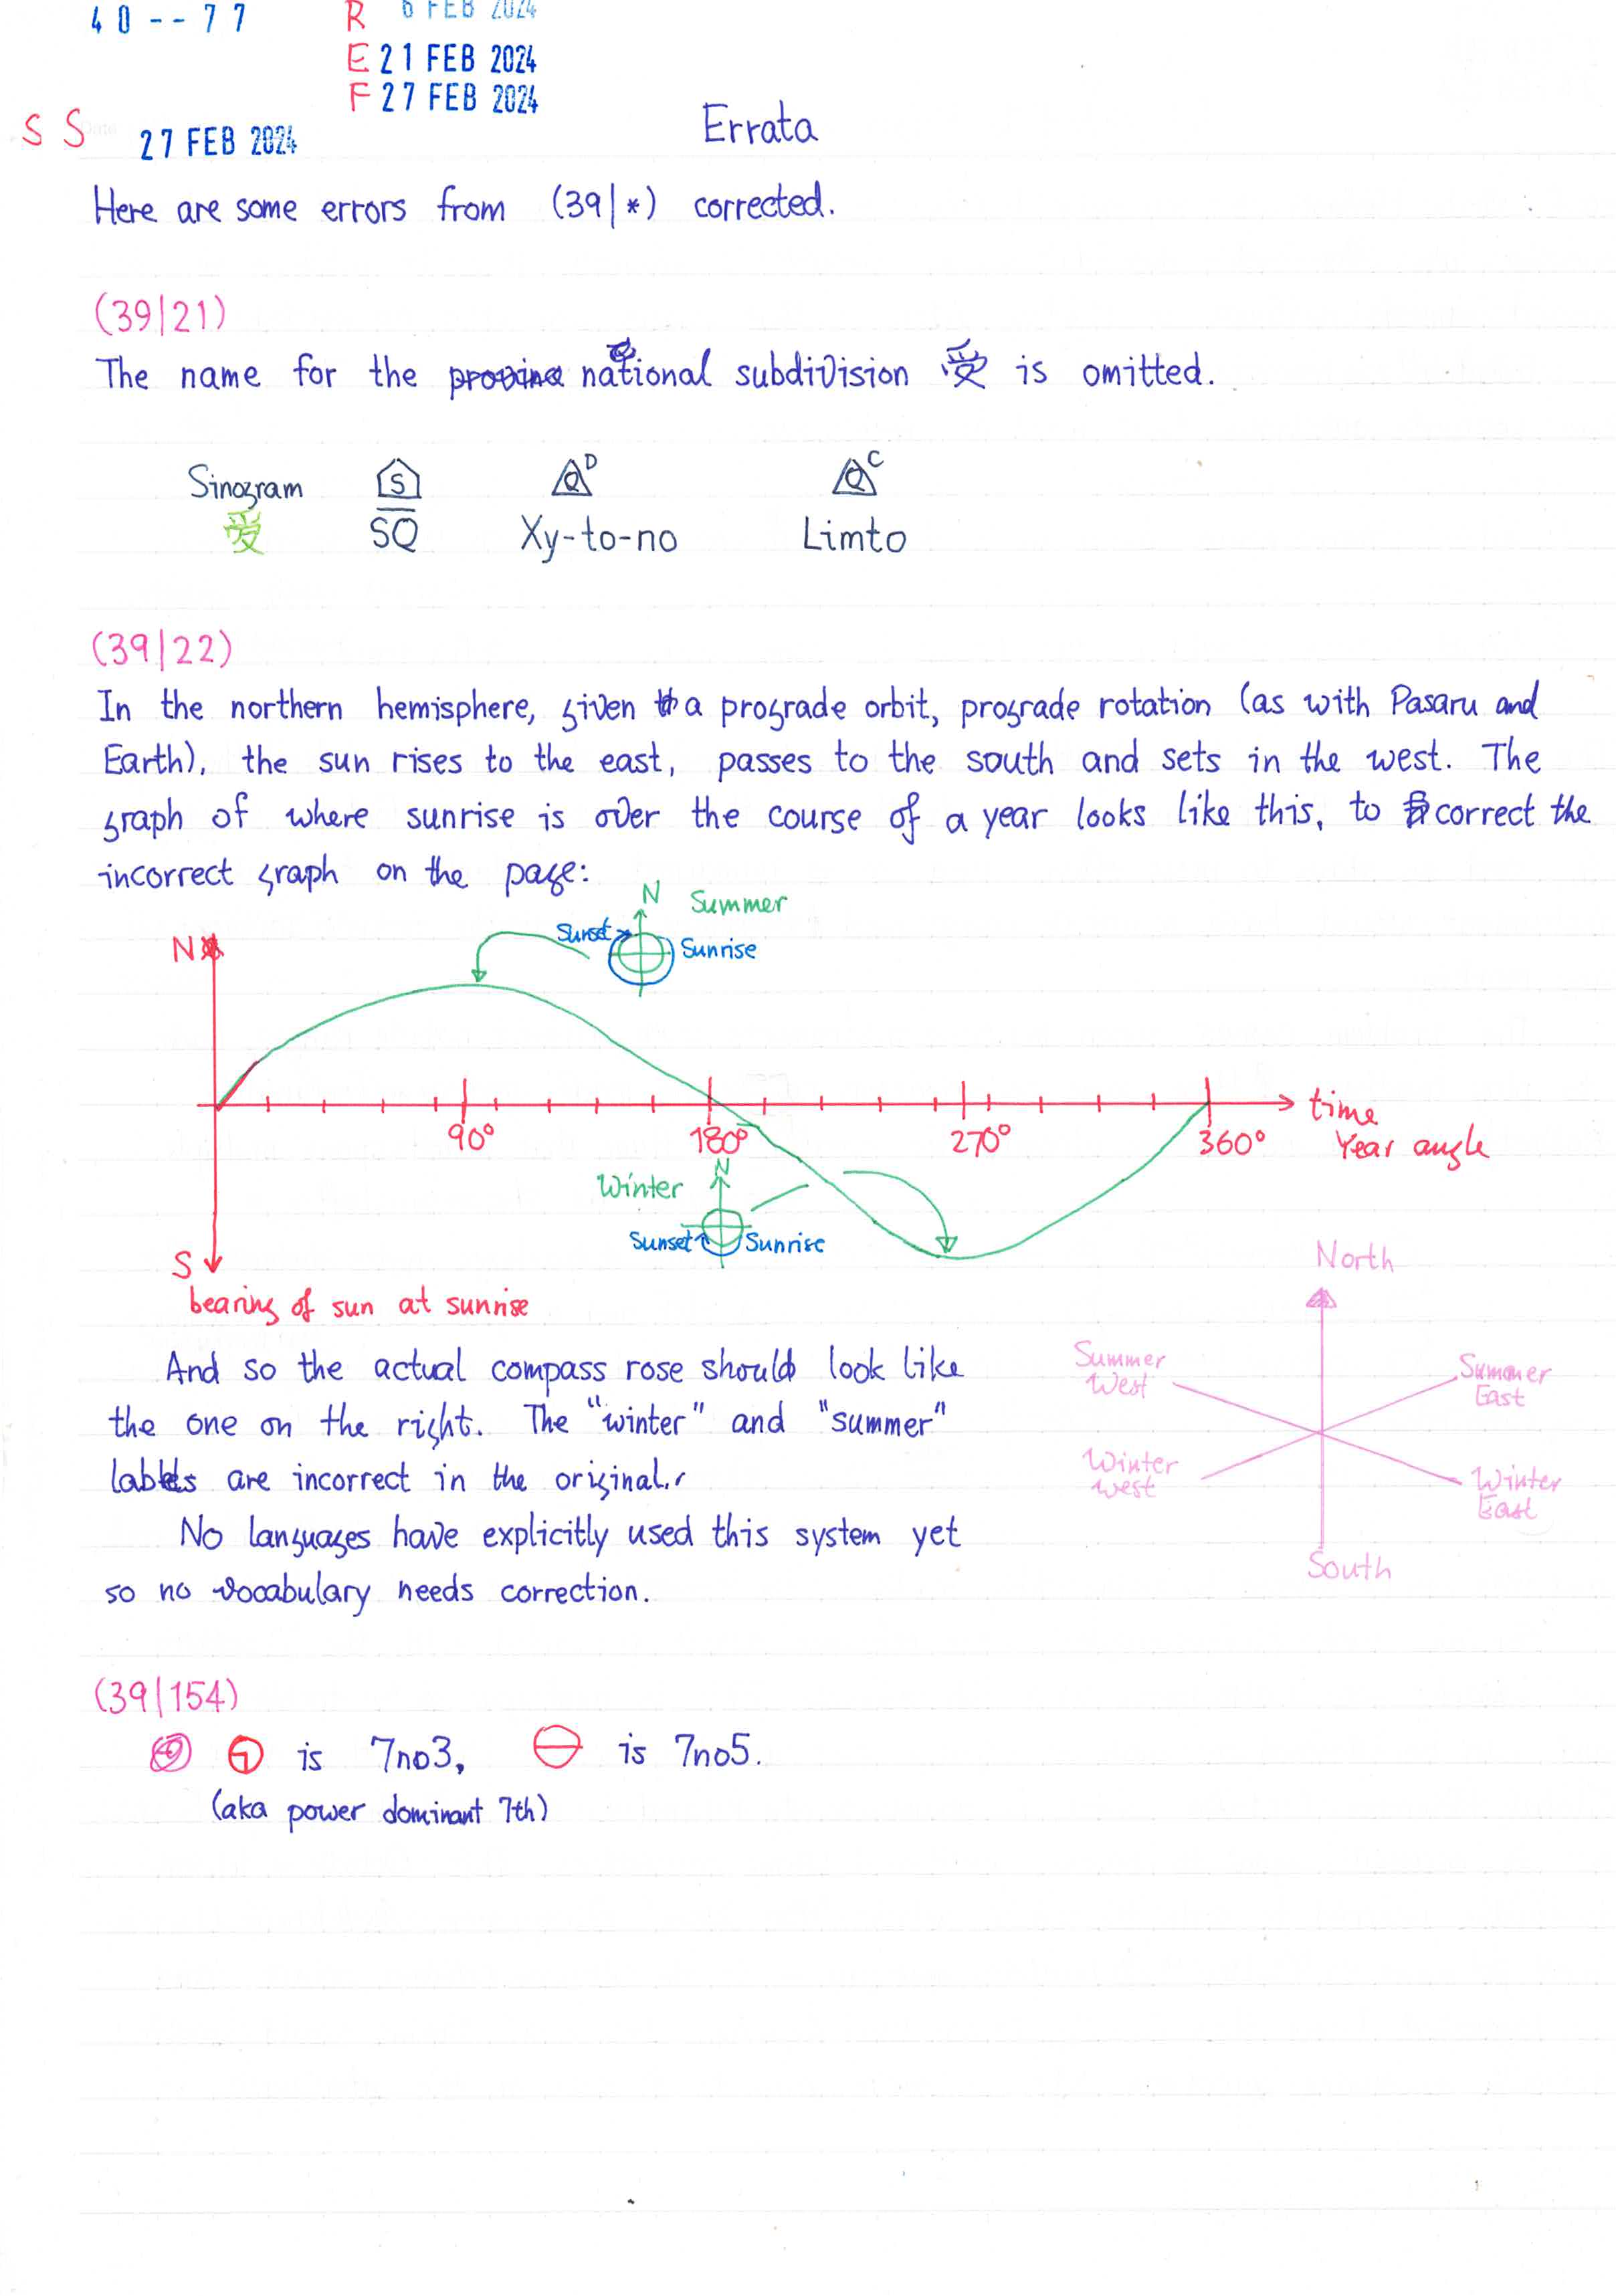 40--77
R 6 FEB 2024
E 21 FEB 2024
F 27 FEB 2024
S S 27 FEB 2024
Errata
Here are some errors from (39|*) corrected.
(39|21)
The name for the national subdivision 受 is omitted.
Sinogram S Q D Q C
受 SQ Xy-to-no Limto
(39|22)
In the northern hemisphere, given a prograde orbit, prograde rotation (as with Pasaru and
Earth), the sun rises to the east, passes to the south and sets in the west. The
graph of where sunrise is over the course of a year looks like this, to correct the
incorrect graph on the page:
N Summer
Sunset Sunrise
N
90° 180° 270° 360°
time
Year angle
Winter N
Sunset Sunrise
S
bearing of sun at sunrise
North
Summer West
Summer East
Winter West
Winter East
South
And so the actual compass rose should look like
the one on the right. The "winter" and "summer"
labels are incorrect in the original.
No languages have explicitly used this system yet
so no vocabulary needs correction.
(39|154)
is 7no3, is 7no5.
(aka power dominant 7th)